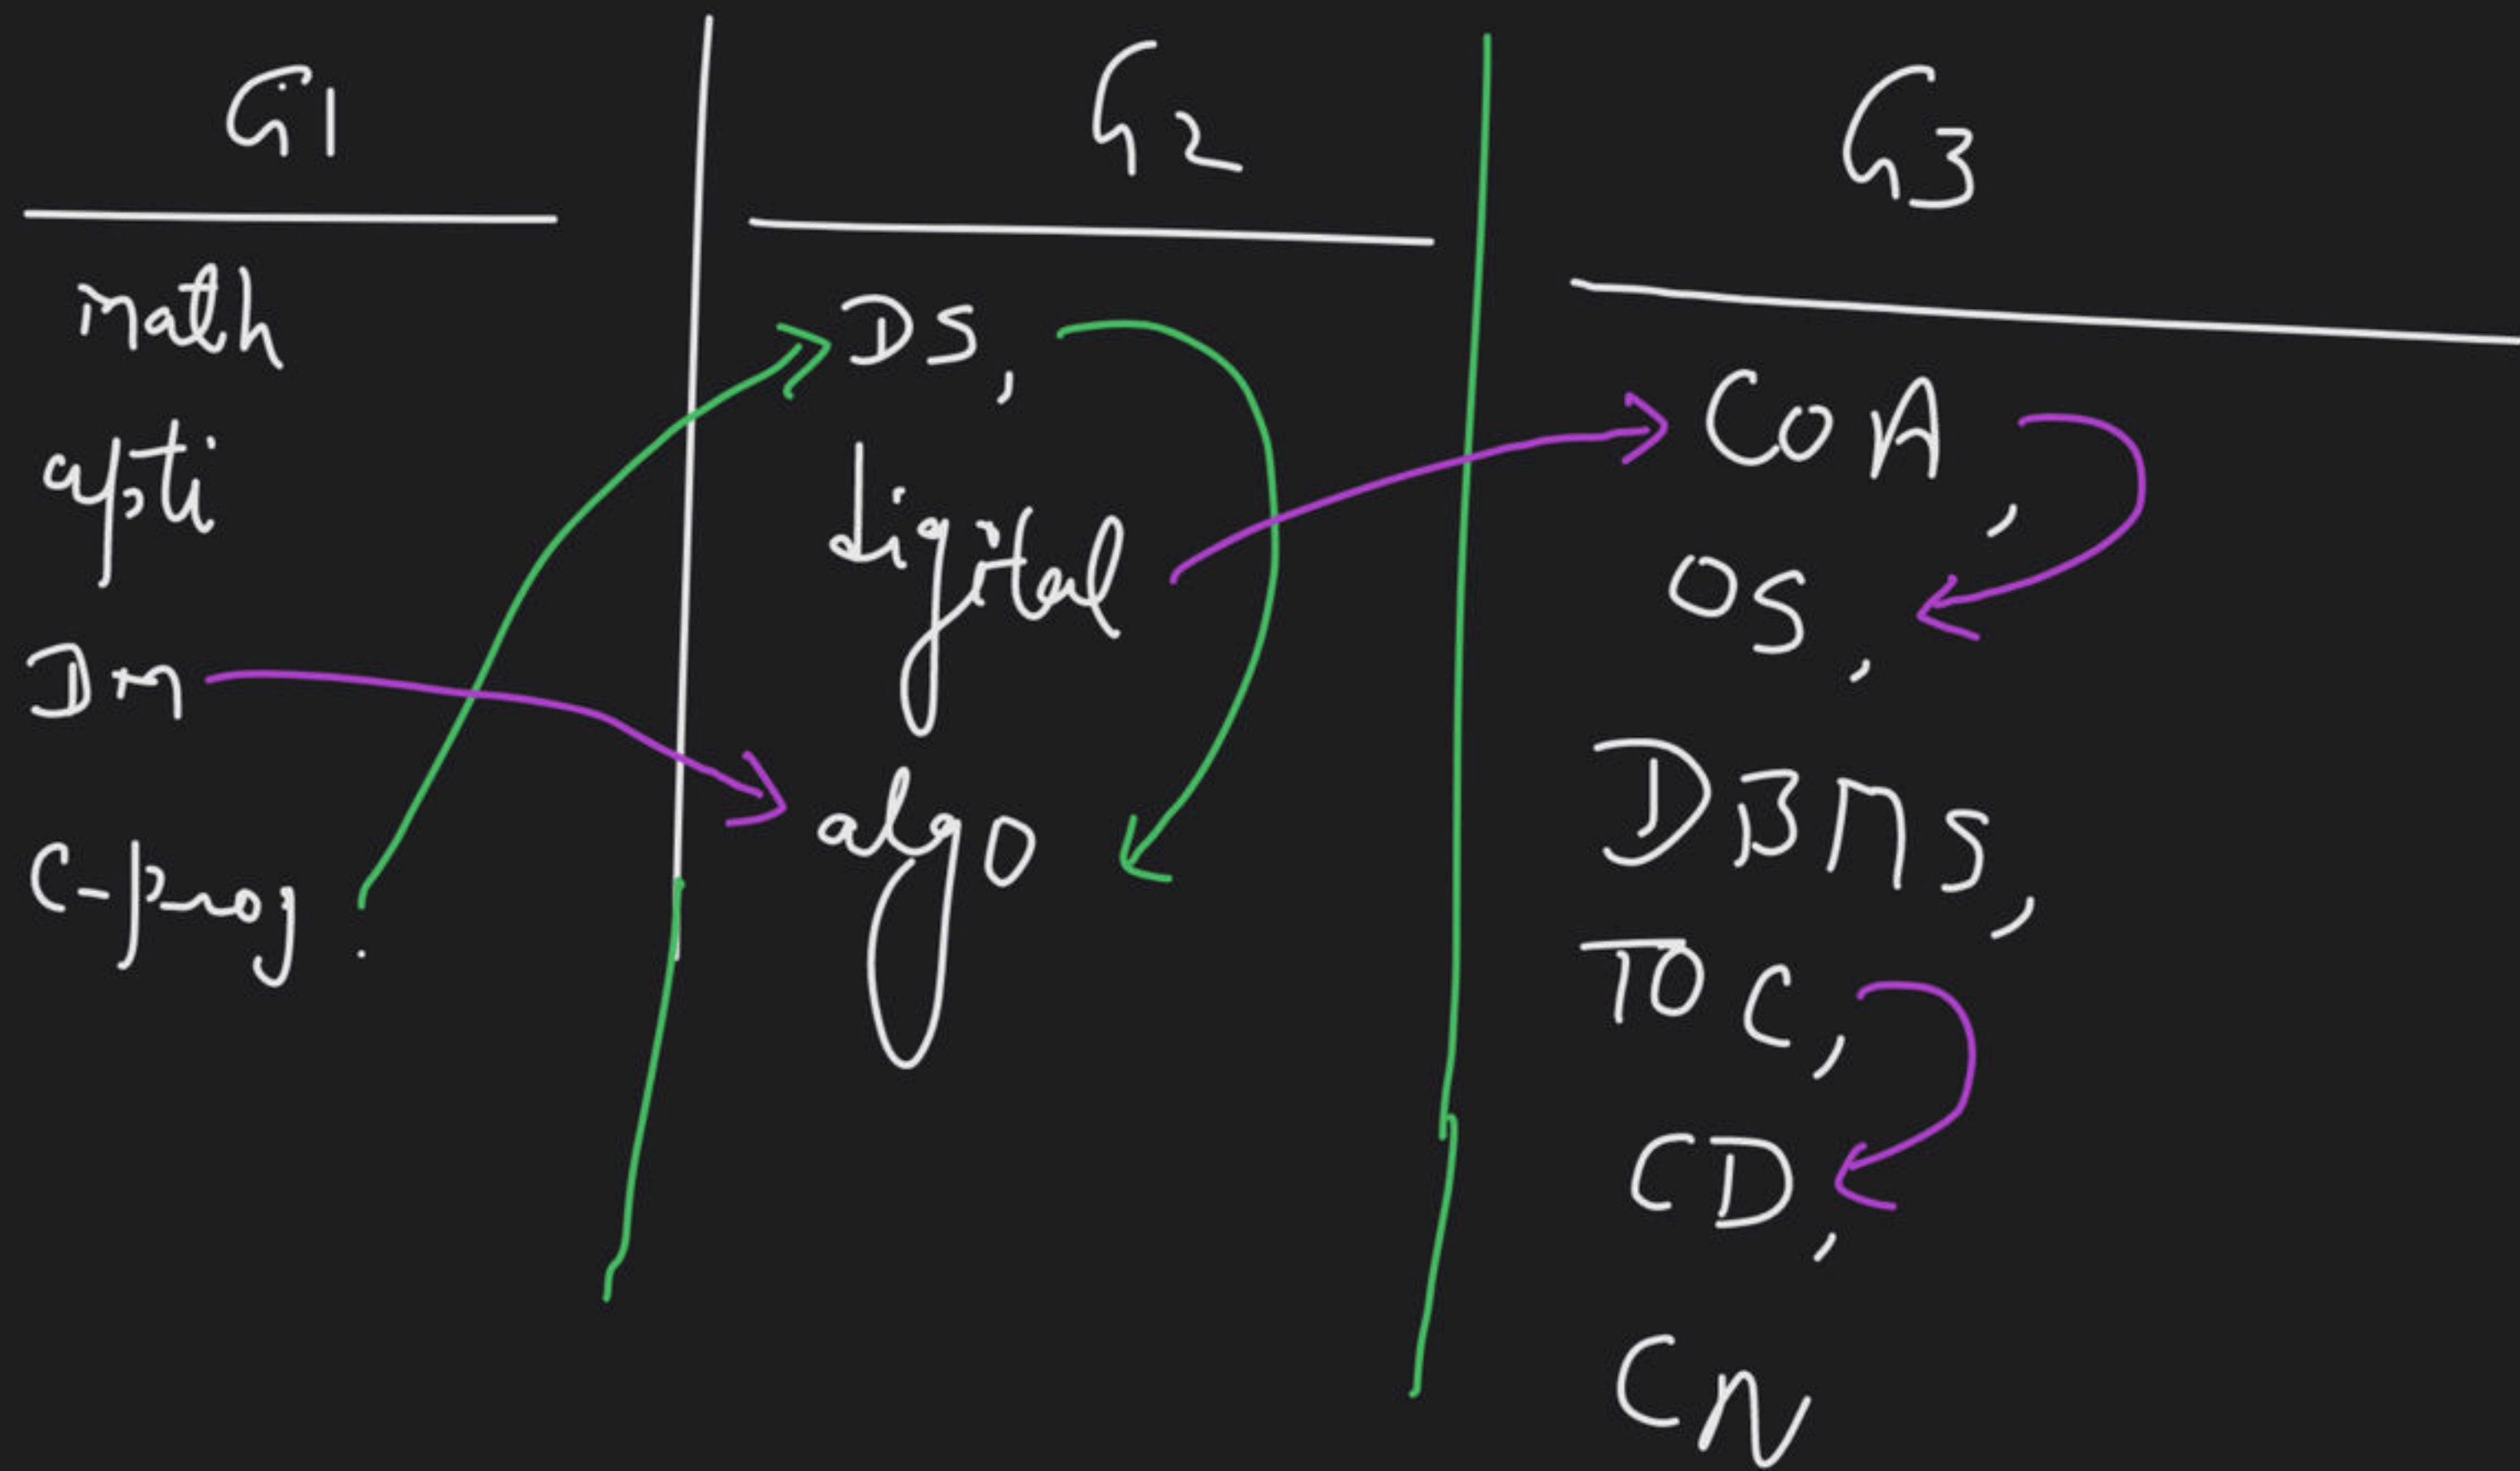 G1
math
apti
Dm
C-prog.
G2
DS,
digital
algo
G3
COA,
OS,
DBMS,
TOC,
CD,
CN